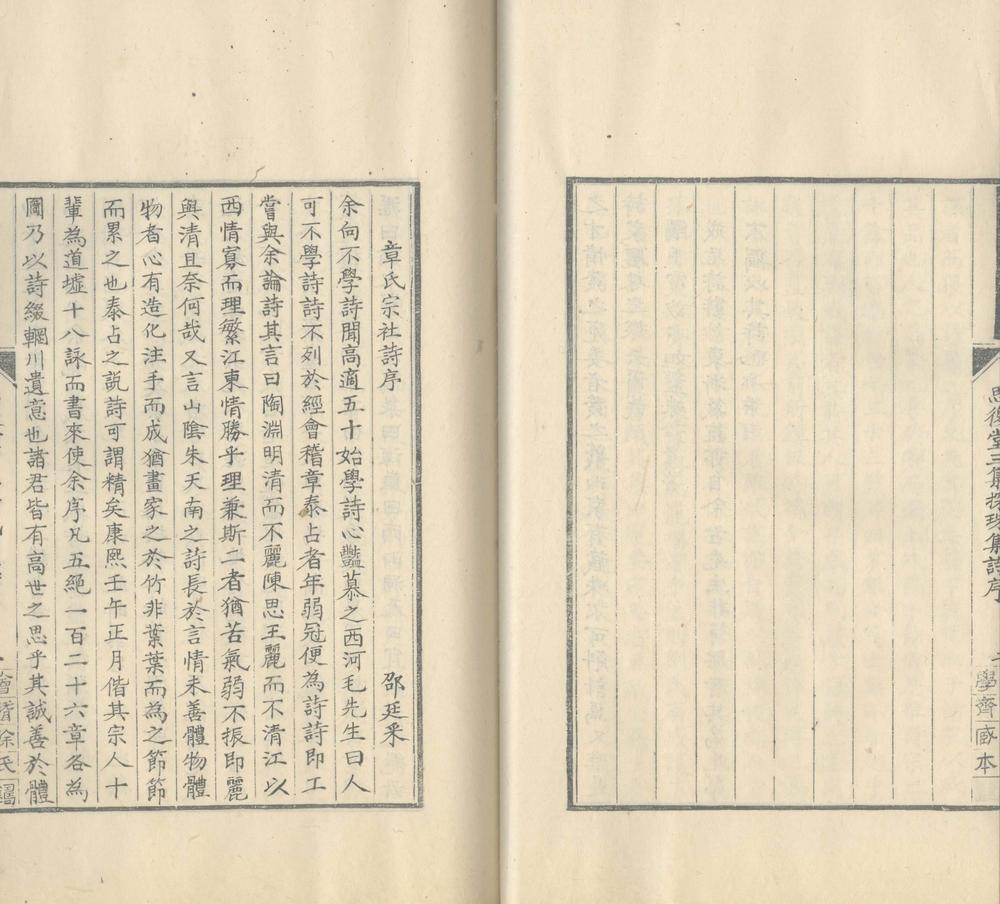 思復堂三集採珠集詩序
學齋藏本
章氏宗社詩序 邵廷采
余向不學詩聞高適五十始學詩心豔慕之西河毛先生曰人
可不學詩詩不列於經會稽章泰占者年弱冠便為詩詩即工
嘗與余論詩其言曰陶淵明清而不麗陳思王麗而不清江以
西情寡而理繁江東情勝乎理兼斯二者猶苦氣弱不振即麗
與清且奈何哉又言山陰朱天南之詩長於言情未善體物體
物者心有造化注手而成猶畫家之於竹非葉葉而為之節節
而累之也泰占之說詩可謂精矣康熙壬午正月偕其宗人十
輩為道墟十八詠而書來使余序凡五絕一百二十六章各為
圖乃以詩綴輞川遺意也諸君皆有高世之思乎其誠善於體
會稽徐氏